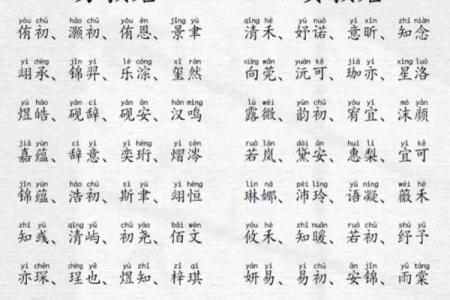 yòu chū hào chū yòu ēn jǐng yù qīng hé yú nuò yì xīn zhī niàn
侑初、灏初、侑恩、景聿 清禾、妤诺、意昕、知念
yì chéng jǐn yì lè cóng xǐ rán xiàng wǎn yuán kě jiā yì xīng luò
翊承、锦羿、乐淙、玺然 向莞、沅可、珈亦、星洛
yù hào yàn cí yàn ān hàn míng lù wēi yùn chū yòu yí mò yán
煜皓、砚辞、砚安、汉鸣 露微、韵初、宥宜、沫颜
jiā yùn cí yì yì héng yì cén ruò lán dài ān huì lí yí kě
嘉蕴、辞意、奕珩、熠涔 若岚、黛安、惠梨、宜可
jǐn yùn hào chū sī yù yì héng lín nà pèi líng yǔ níng wēi hé
锦蕴、浩初、斯聿、翊恒 琳娜、沛玲、语凝、薇禾
zhī yù qīng yǔ chū yáo bǎi wén yōu hé zhī nuǎn ruò chū shū yǔ
知彧、清屿、初尧、佰文 攸禾、知暖、若初、纾予
yì chēn chéng yě yù zhī zǐ qí yán yì yì chū ān jǐn yǔ táng
亦琛、珵也、煜知、梓琪 妍易、易初、安锦、雨棠